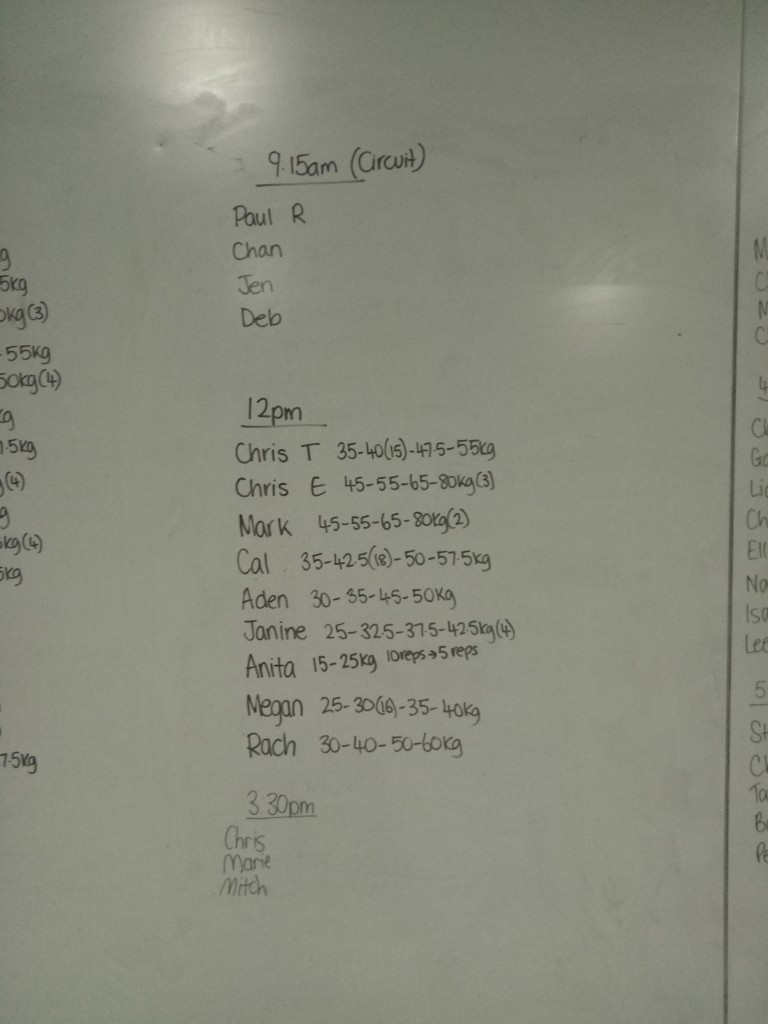 9.15am (Circuit)
Paul R
Chan
Jen
Deb
12pm
Chris T 35-40(15)-47.5-55kg
Chris E 45-55-65-80kg(3)
Mark 45-55-65-80kg(2)
Cal 35-42.5(18)-50-57.5kg
Aden 30-35-45-50kg
Janine 25-32.5-37.5-42.5kg(4)
Anita 15-25kg 10reps→5 reps
Megan 25-30(16)-35-40kg
Rach 30-40-50-60kg
3.30pm
Chris
Marie
Mitch
5kg
kg(3)
55kg
50kg(4)
kg
.5kg
(4)
kg(4)
5kg
7.5kg